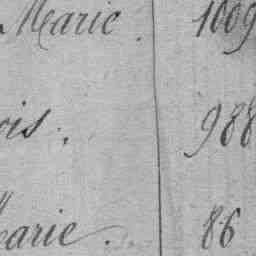 Marie . 1009
ois . 988
Marie . 86